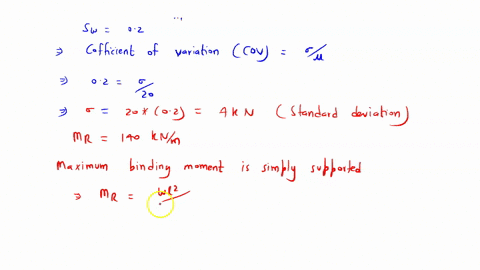 ...
Sw = 0.2
⇒ Cofficient of variation (COV) = σ/μ
⇒ 0.2 = σ/20
⇒ σ = 20*(0.2) = 4kN (Standard deviation)
MR = 140 kN/m
Maximum binding moment is simply supported
⇒ MR = wl²/